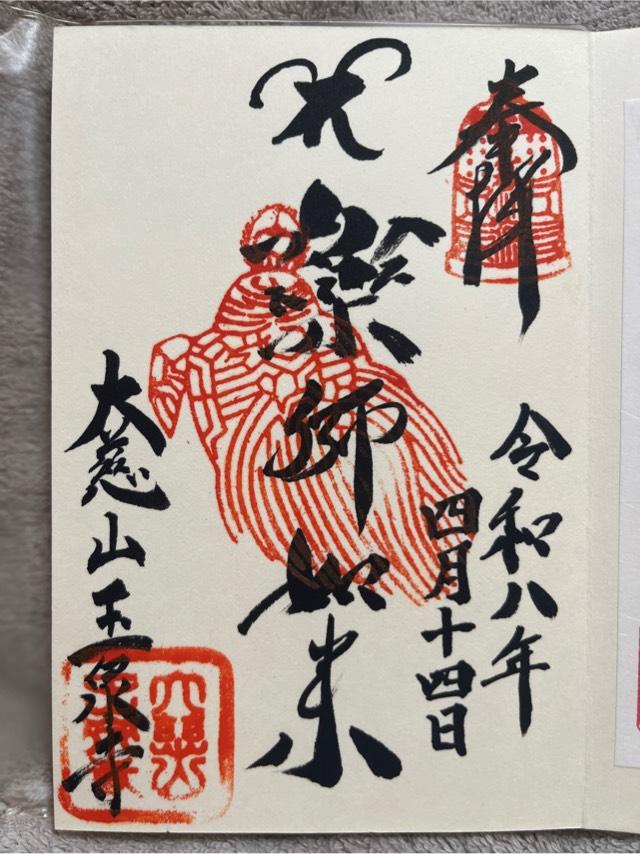 奉拝
令和八年
四月十四日
藥師如来
大慈山玉泉寺